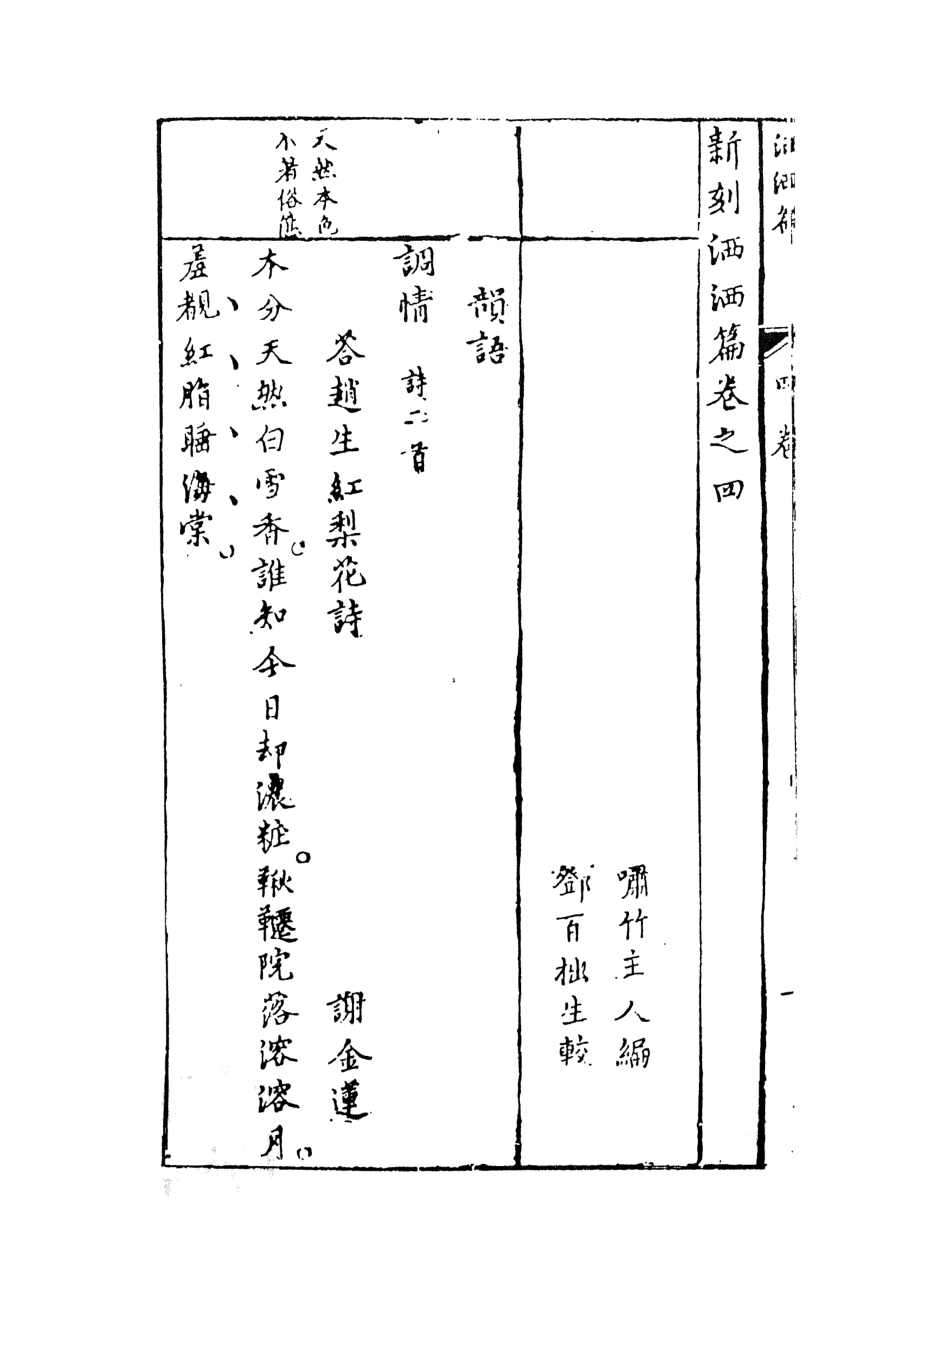 洒洒篇
四卷
一
新刻洒洒篇卷之四
嘯竹主人編
鄧百拙生較
韻語
調情 詩二首
答趙生紅梨花詩 謝金蓮
天然本色
不著俗態
本分天然白雪香。誰知今日却濃粧。鞦韆院落溶溶月。
羞覩紅脂睡海棠。